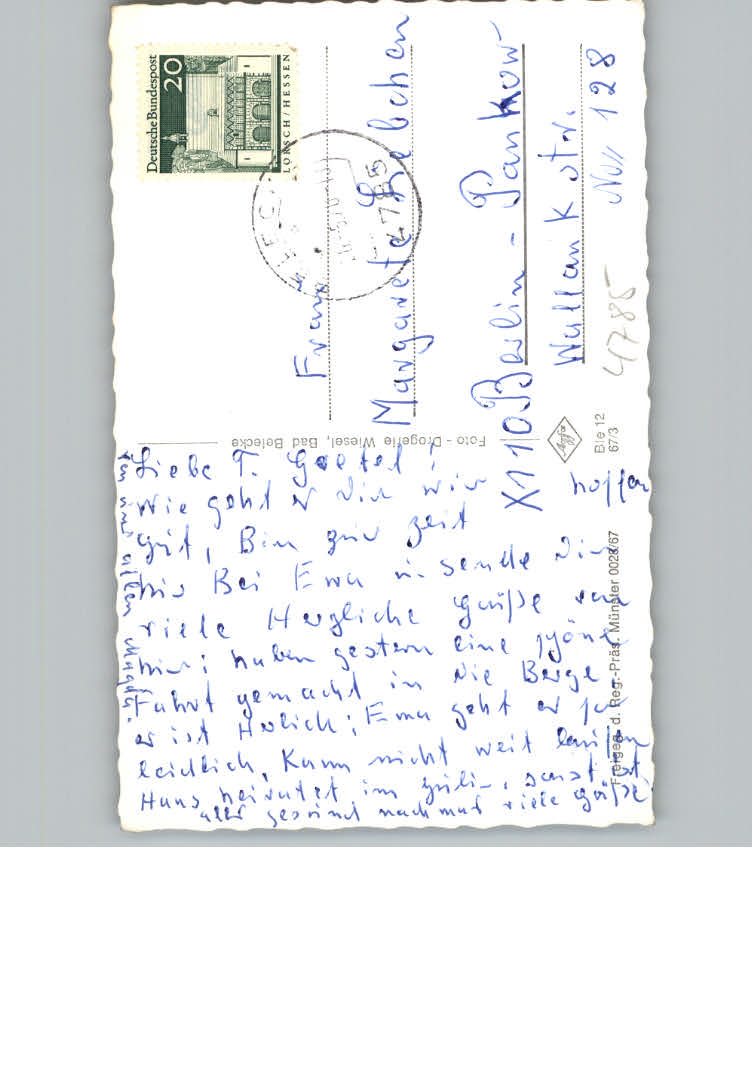 Liebe T. Gretel!
Wie geht es Dir wir hoffen
gut, Bin zur zeit
hir Bei Erna u. sende Dir
viele Herzliche Grüße von
hir; haben gestern eine schöne
Fahrt gemacht in die Berge
es ist Herlich; Erna geht es ja
leidlich, Kann nicht weit laufen
Hans heiratet im Juli, sonst ist
alles gesund nochmal viele Grüße
von uns allen
Foto - Drogerie Wiesel, Bad Belecke
Agfa
Ble 12
67/3
Freigeg. d. Reg.-Präs. Münster 0028/67
Deutsche Bundespost
20
LORSCH/HESSEN
4785
Frau
Margarete Liebchen
X110 Berlin - Pankow
Wollankstr.
Nu 128
4785